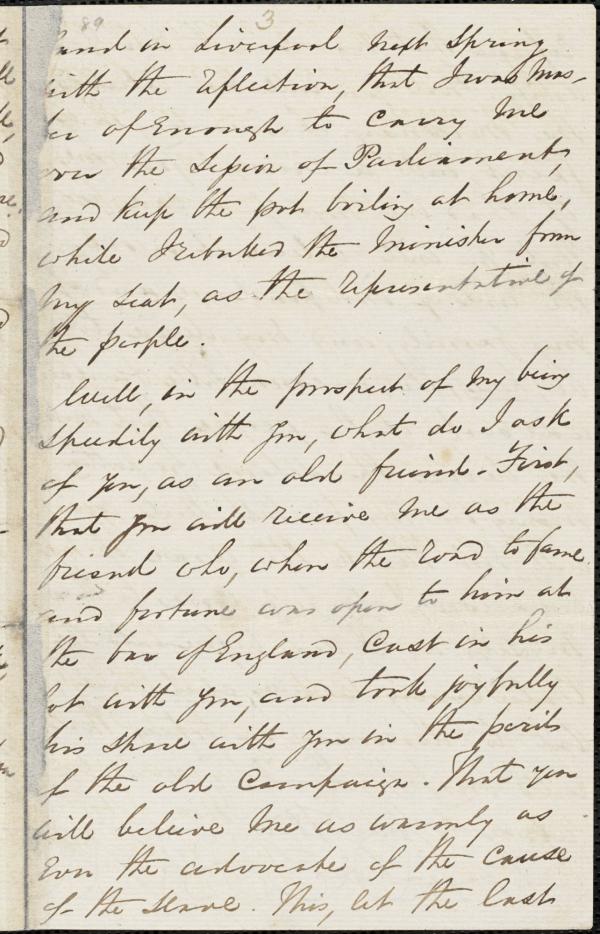 89 3
land in Liverpool next spring
with the reflection, that I was mas-
ter of enough to carry me
over the Session of Parliament,
and keep the pot boiling at home,
while I rebuked the Minister from
my seat, as the representative of
the people.
Well, in the prospect of my being
speedily with you, what do I ask
of you, as an old friend - First,
that you will receive me as the
friend who, when the road to fame
and fortune was open to him at
the bar of England, cast in his
lot with you, and took joyfully
his share with you in the perils
of the old Campaign. That you
will believe me as warmly as
ever the advocate of the cause
of the slave. This, let the last